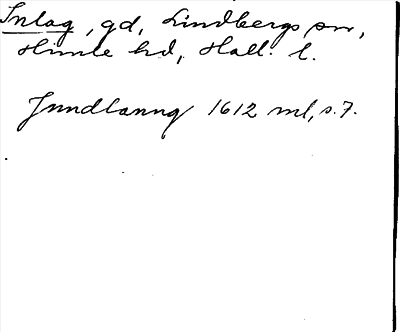 Inlag, gd, Lindbergs sn,
Himle hd, Hall. l.
Jnndlanng 1612 ml, s. 7.